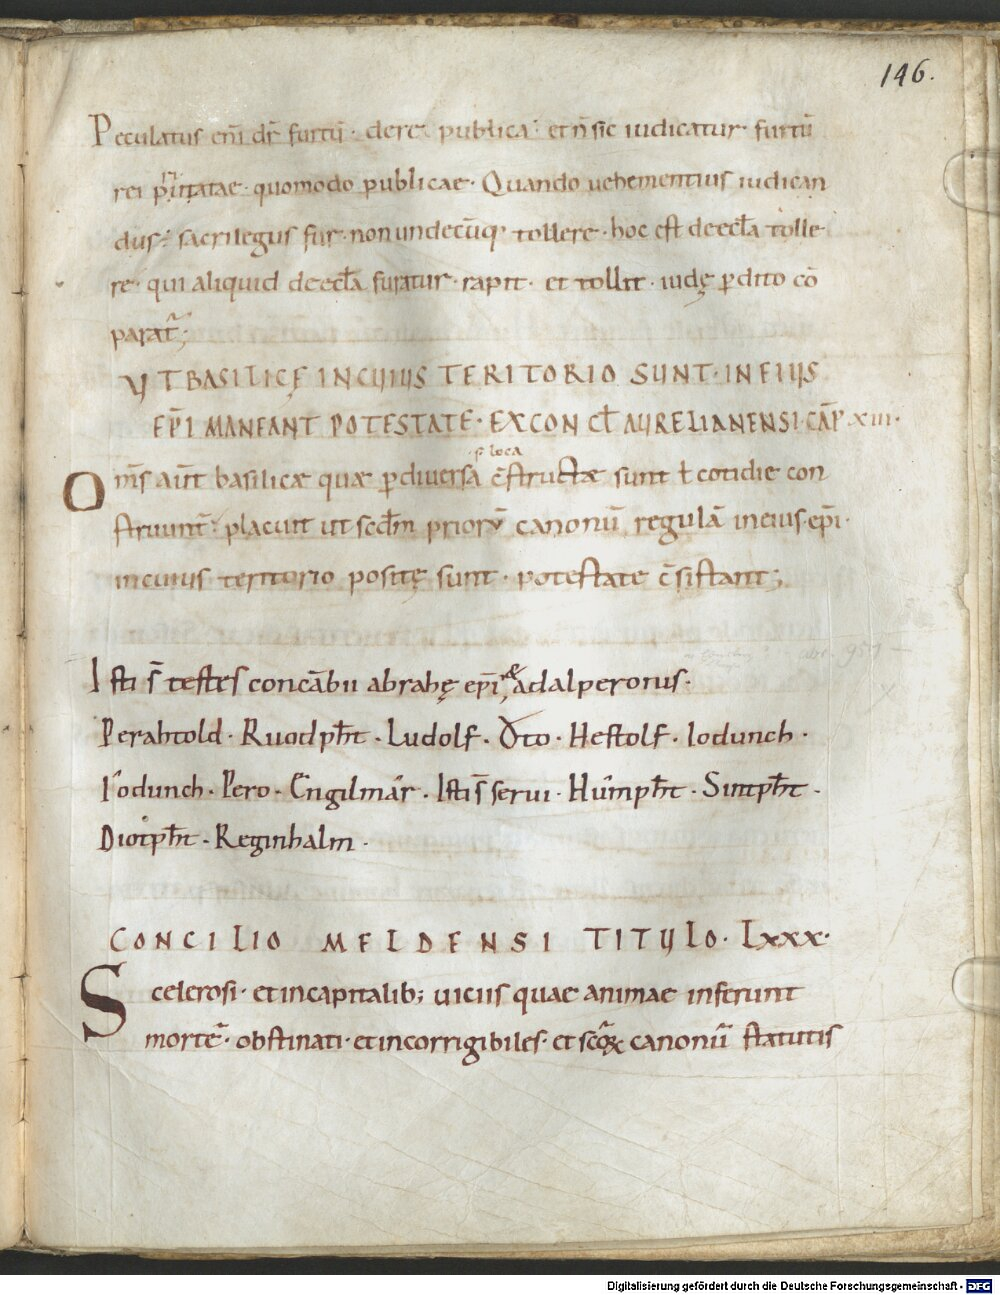 146.
Peculatus eni͞ dr̄ furtū· dere publica· et n̄ sic iudicatur furtū
rei priuatae· quomodo publicae· Quando uehementius iudican
dus· sacrilegus fur· non undecūq· tollere· hoc est de eccła tolle
re· qui aliquid de eccła furatur· rapit· et tollit· iudę ꝑdito cō
parat͛;
UT BASILICĘ IN CUIUS TERITORIO SUNT· IN EIUS
EP̄I MANEANT POTESTATE· EX CON CŁ AURELIANENSI· CAP̄ XIII·
loca
Om̄s aūt basilicæ quæ ꝑ diuersa c̄structæ sunt ł cotidie con
struunt͛· placuit ut scđm prioꝝ canonū regulā in eius ep̄i·
in cuius territorio positę sunt· potestate c̄sistant;
951
Isti s̄ testes concābii abrahę ep̄i, & adalperonis·
Perahtold· Ruodpħt· Ludolf· Oto· Hestolf· Iodunch·
Iodunch· Pero· Engilmar· Isti s̄ serui· Humpħt· Sintpħt·
Diotpħt· Reginhalm·
CONCILIO MELDENSI TITULO· LXXX·
Scelerosi· et in capitalib; uiciis quae animae inferunt
mortē· obstinati· et incorrigibiles· et scōꝝ canonū statutis
Digitalisierung gefördert durch die Deutsche Forschungsgemeinschaft - DFG